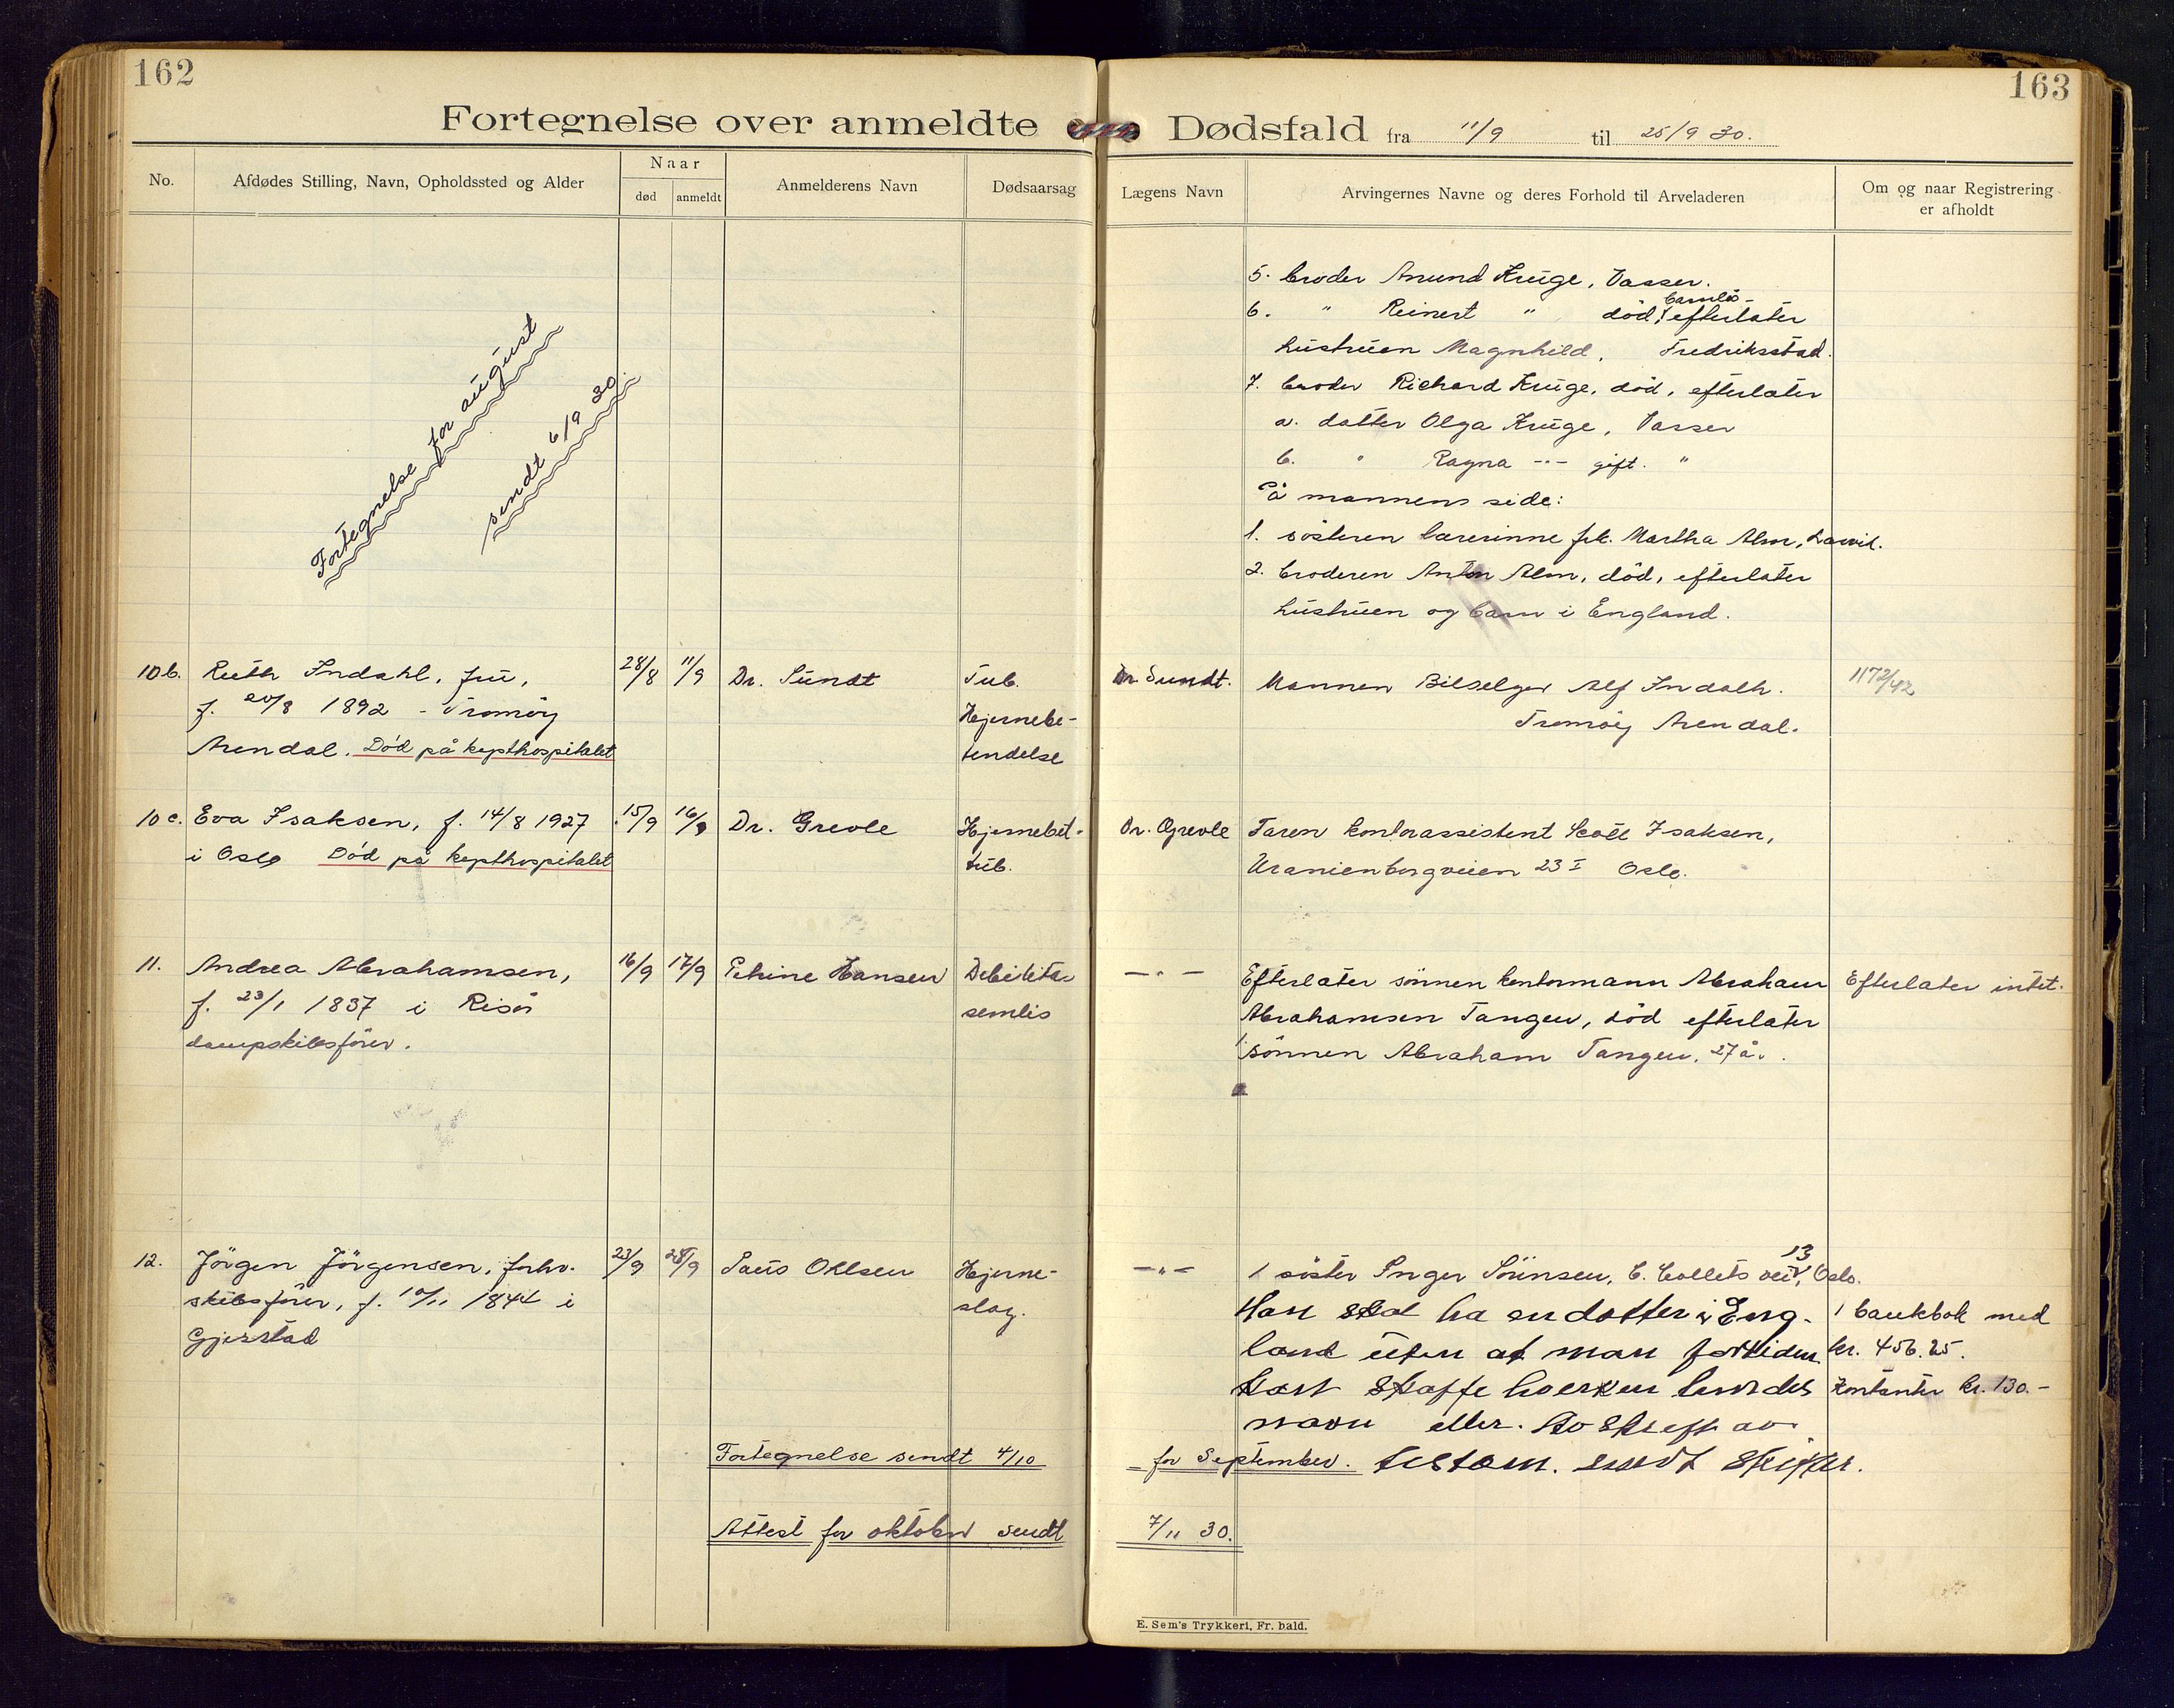 162
Fortegnelse over anmeldte
No.
Afdødes Stilling, Navn, Opholdssted og Alder
Naar
død
anmeldt
Anmelderens Navn
Dødsaarsag
Fortegnelse for august
sendt 6/9 30.
10b. Ruth Indahl, fru, 28/8 11/9 Dr. Sundt Tub.
f. 20/8 1892 - Tromöy Hjernebe-
Arendal. Död på kysthospitalet tendelse
10c. Eva Isaksen, f. 14/8 1927 15/9 16/9 Dr. Grevle Hjernebet.
i Oslo Död på kysthospitalet tub.
11. Andrea Abrahamsen, 16/9 17/9 Hansen Debilitas
f. 23/1 1837 i Risör semlis
dampskibsförer.
12. Jörgen Jörgensen, forhv. 23/9 25/9 Ohlsen Hjerne-
skibsförer, f. 10/11 1844 i slag.
Gjerstad
Fortegnelse sendt 4/10
Attest for oktober sendt
163
Dødsfald fra 11/9 til 25/9 30.
Lægens Navn
Arvingernes Navne og deres Forhold til Arveladeren
Om og naar Registrering
er afholdt
5. broder Anund Kruge, Vasser.
barnlös-
6. " Reinert " död, efterlater
hustruen Magnhild, Fredriksstad.
7. broder Richard Kruge, död, efterlater
a. datter Olga Kruge, Vasser
b. " Ragna -"- gift. "
På mannens side:
1. sösteren lærerinne frk. Martha Alm, Larvik.
2. broderen Anton Alm, död, efterlater
hustruen og barn i England.
Dr. Sundt. Mannen Bilselger Alf Indalh. 1172/42
Tromöy Arendal.
Dr. Grevle Faren kontorassistent Isaksen,
Uranienborgveien 23 I Oslo.
-"- Efterlater sönnen kontormann Abraham Efterlater intet.
Abrahamsen Tangen, död efterlater
sönnen Abraham Tangen, 27 år.
13
-"- 1 söster Inger Sörensen, C. Collets vei, Oslo.
Han skal ha en datter i Eng- 1 bankbok med
land uten at man fortiden kr. 456.25.
kan skaffe hverken hendes Kontanter kr. 130.-
navn eller. Avskrift av
for September. testam. sendt skifter.
7/11 30.
E. Sem's Trykkeri, Fr. hald.